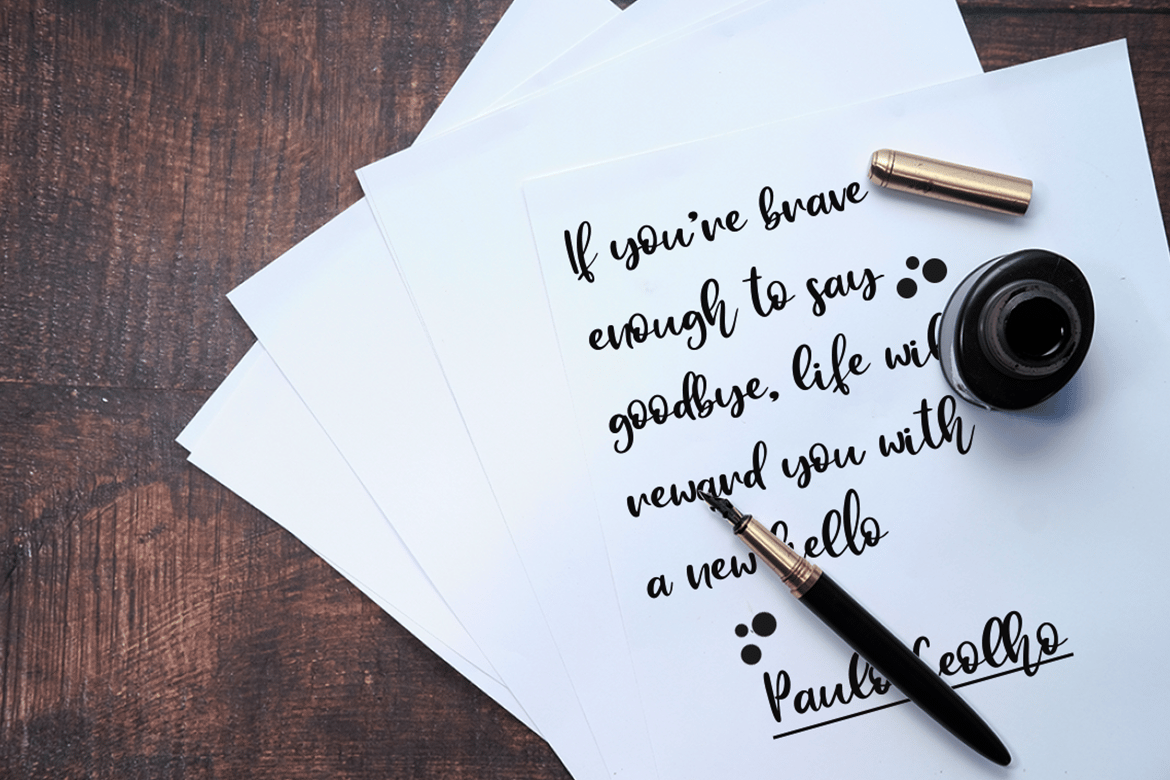 If you're brave
enough to say
goodbye, life will
reward you with
a new hello
Paulo Ceolho